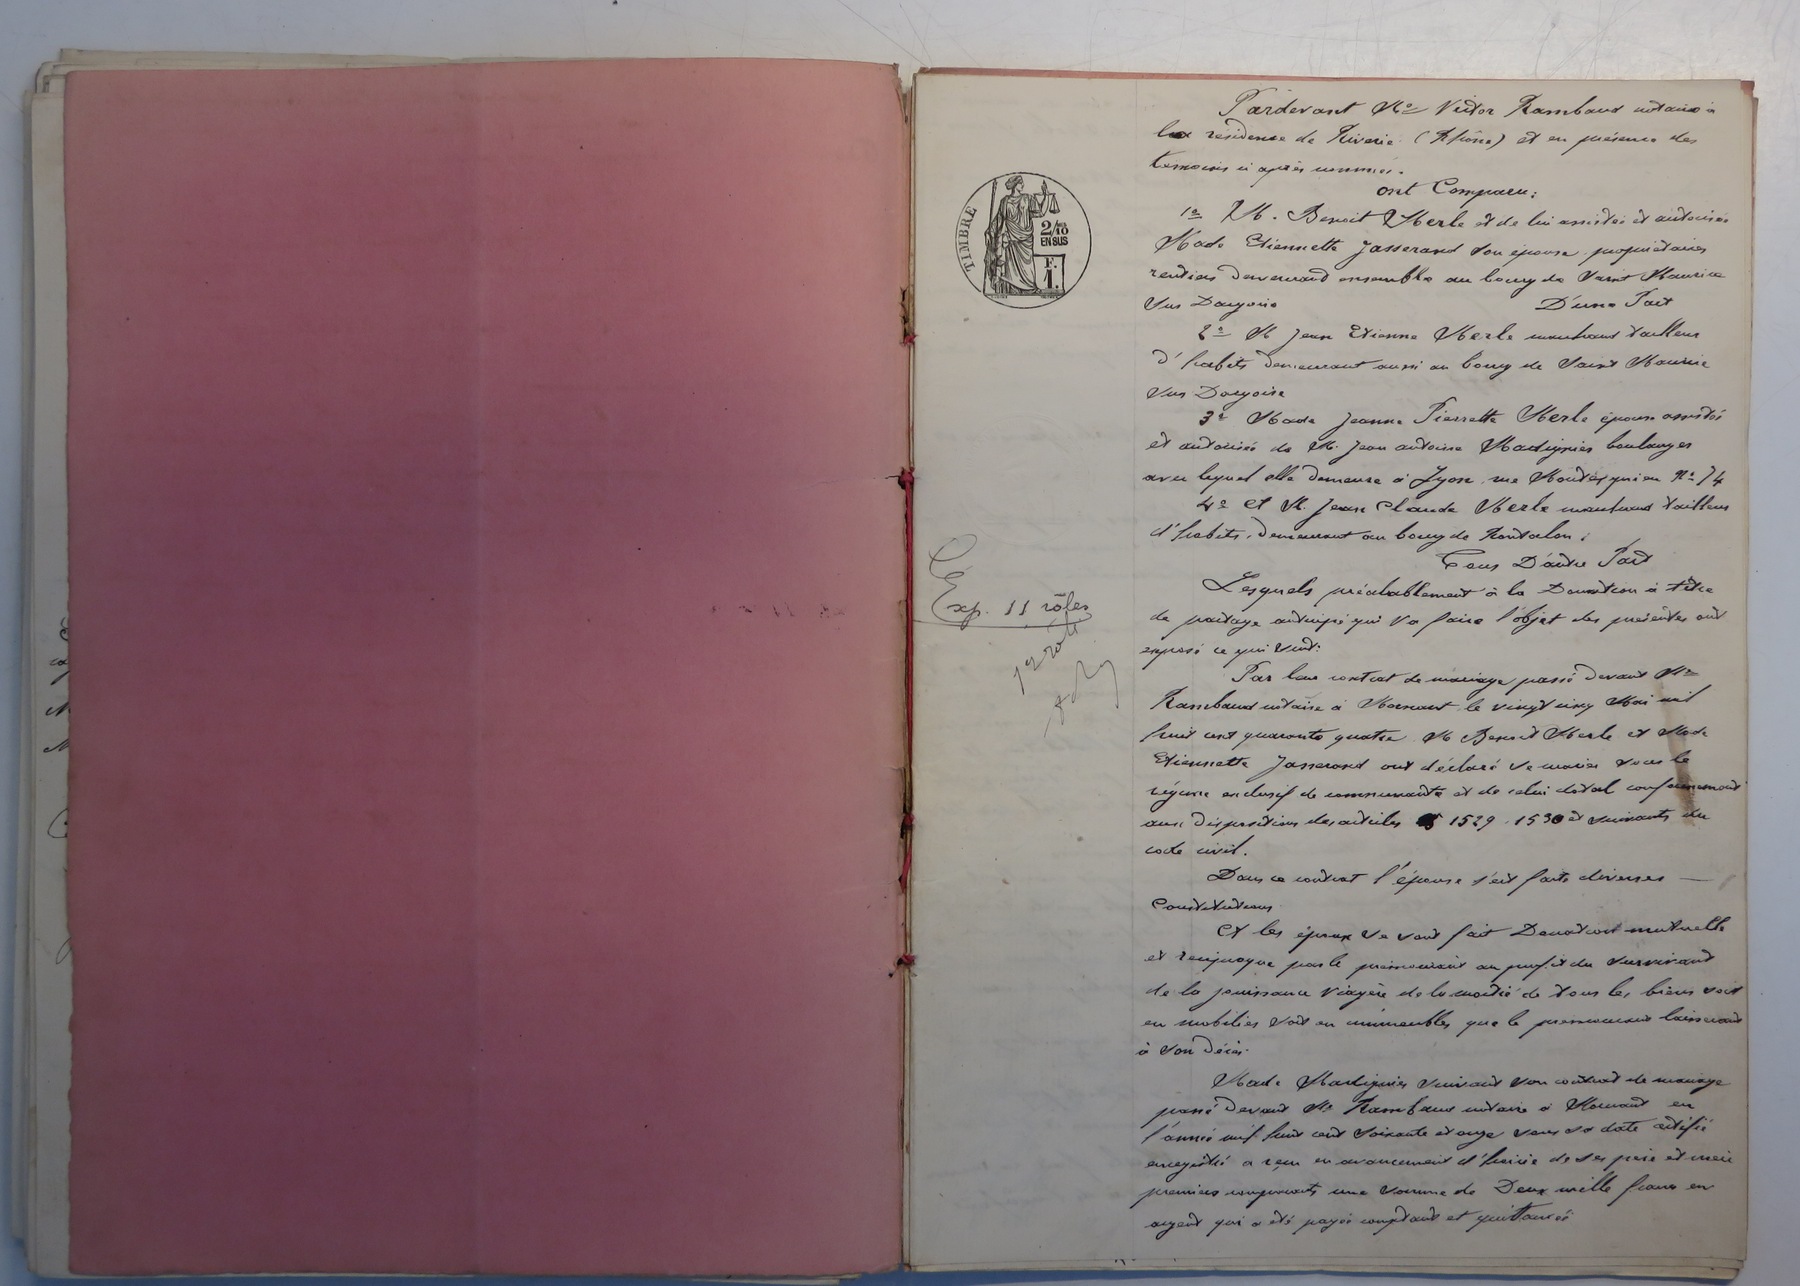 TIMBRE
2/10
EN SUS
F.
1.
Exp. 11 rôles
Pardevant Me Victor Rambaud notaire à
la résidence de Riverie (Rhône) et en présence des
témoins ci après nommés.
ont Comparu:
1o M. Benoit Merle et de lui assistée et autorisée
Made Etiennette Jasserand son épouse, propriétaires
rentiers demeurant ensemble au bourg de Saint Maurice
sur Dargoire D'une Part
2o M Jean Etienne Merle marchand tailleur
d'habits demeurant aussi au bourg de Saint Maurice
sur Dargoire
3o Made Jeanne Pierrette Merle épouse assistée
et autorisée de M. Jean antoine Madignier boulanger
avec lequel elle demeure à Lyon rue Montesquieu No 74
4o et M. Jean Claude Merle marchand tailleur
d'habits, demeurant au bourg de Rontalon;
Tous D'autre Part
Lesquels préalablement à la Donation à titre
de partage anticipé qui va faire l'objet des présentes ont
exposé ce qui suit:
Par leur contrat de mariage passé devant Me
Rambaud notaire à Mornant le vingt cinq Mai mil
huit cent quarante quatre M Benoit Merle et Made
Etiennette Jasserand ont déclaré se marier sous le
régime exclusif de communauté et de celui dotal conformément
aux dispositions des articles 1529. 1530 et suivants du
code civil.
Dans ce contrat l'épouse s'est faite diverses
Constitutions
Et les époux se sont fait Donation mutuelle
et réciproque par le prémourant au profit du survivant
de la jouissance viagère de la moitié de tous les biens soit
en mobilier soit en immeubles que le prémourant laisserait
à son décès.
Made Madignier suivant son contrat de mariage
passé devant Me Rambaud notaire à Mornant en
l'année mil huit cent soixante et onze sous sa date
enregistré a reçu en avancement d'hoirie de ses père et mère
premiers comparants une somme de Deux mille francs en
argent qui a été payée comptant et quittancée